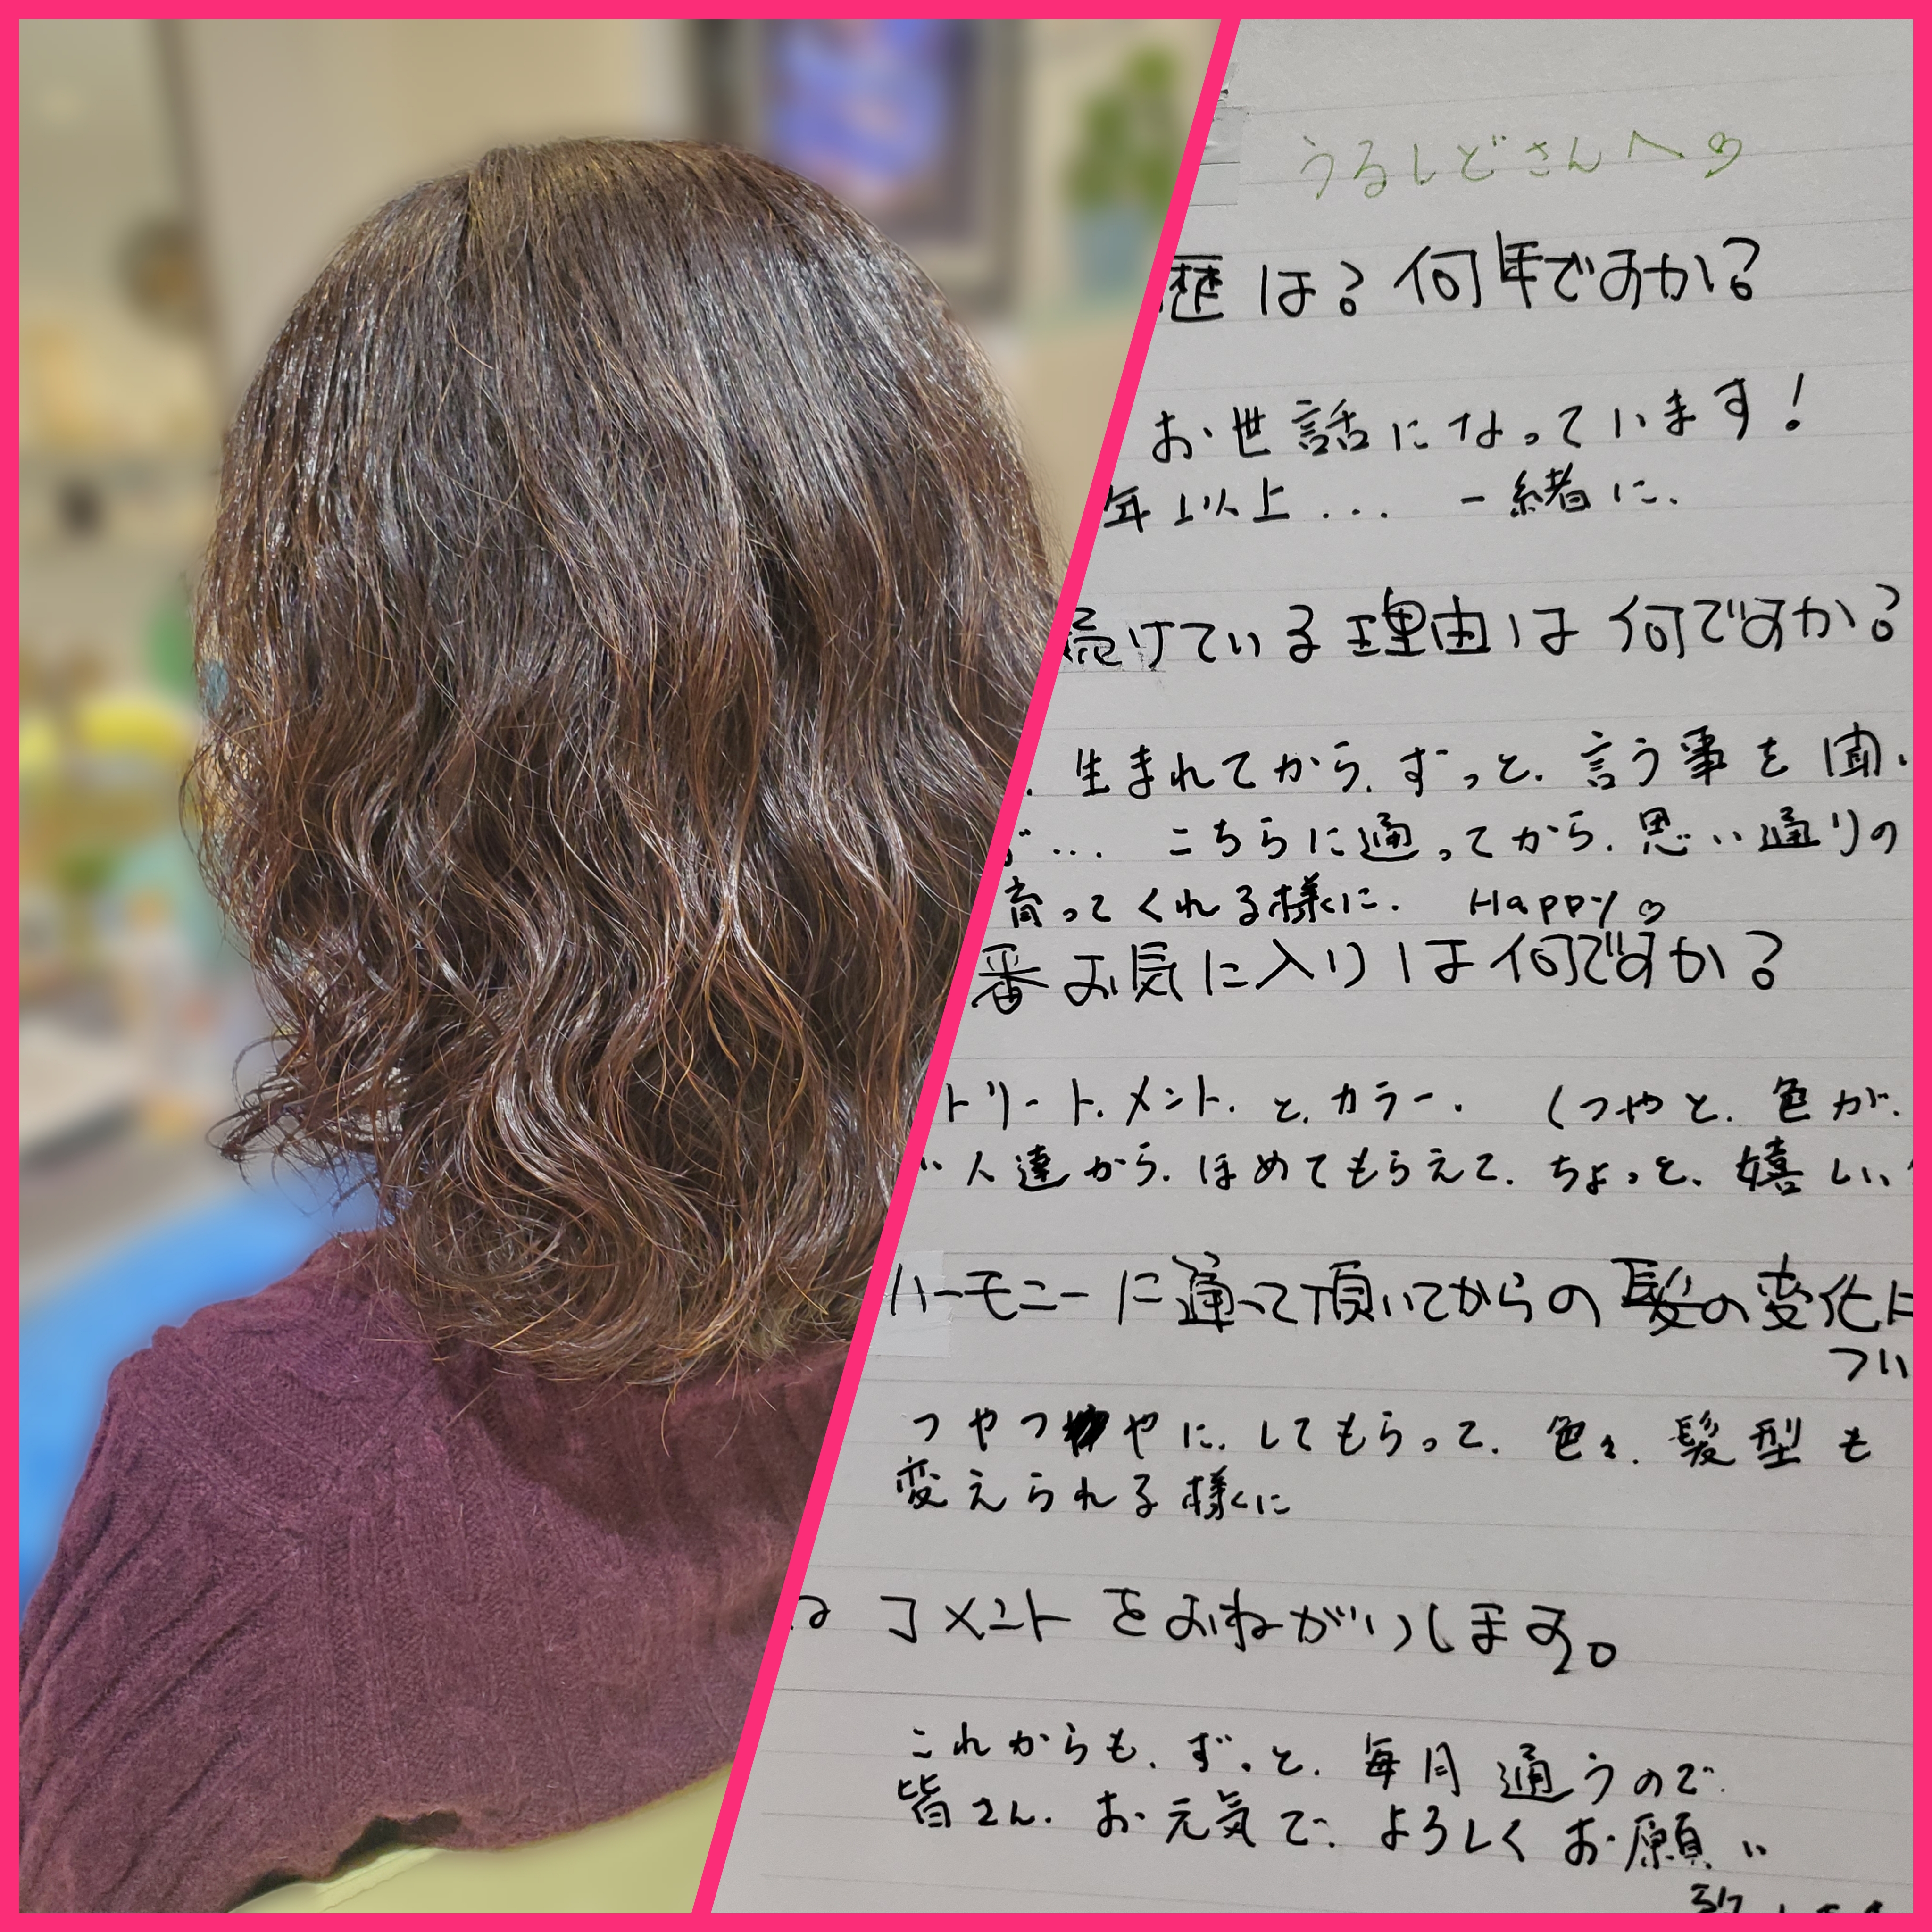 うるしどさんへ♡
歴は？何年ですか？
お世話になっています！
年以上... 一緒に.
続けている理由は何ですか？
生まれてから.ずっと.言う事を聞.
... こちらに通ってから.思い通りの
育ってくれる様に. Happy♡
番お気に入りは何ですか？
トリートメント.と.カラー. (つやと.色が.
人達から.ほめてもらえて.ちょっと.嬉しい
ハーモニーに通って頂いてからの髪の変化に
つい
つやつやに.してもらって.色々.髪型も
変えられる様に
コメントをおねがいします。
これからも.ずっと.毎月通うので.
皆さん.お元気で.よろしくお願い